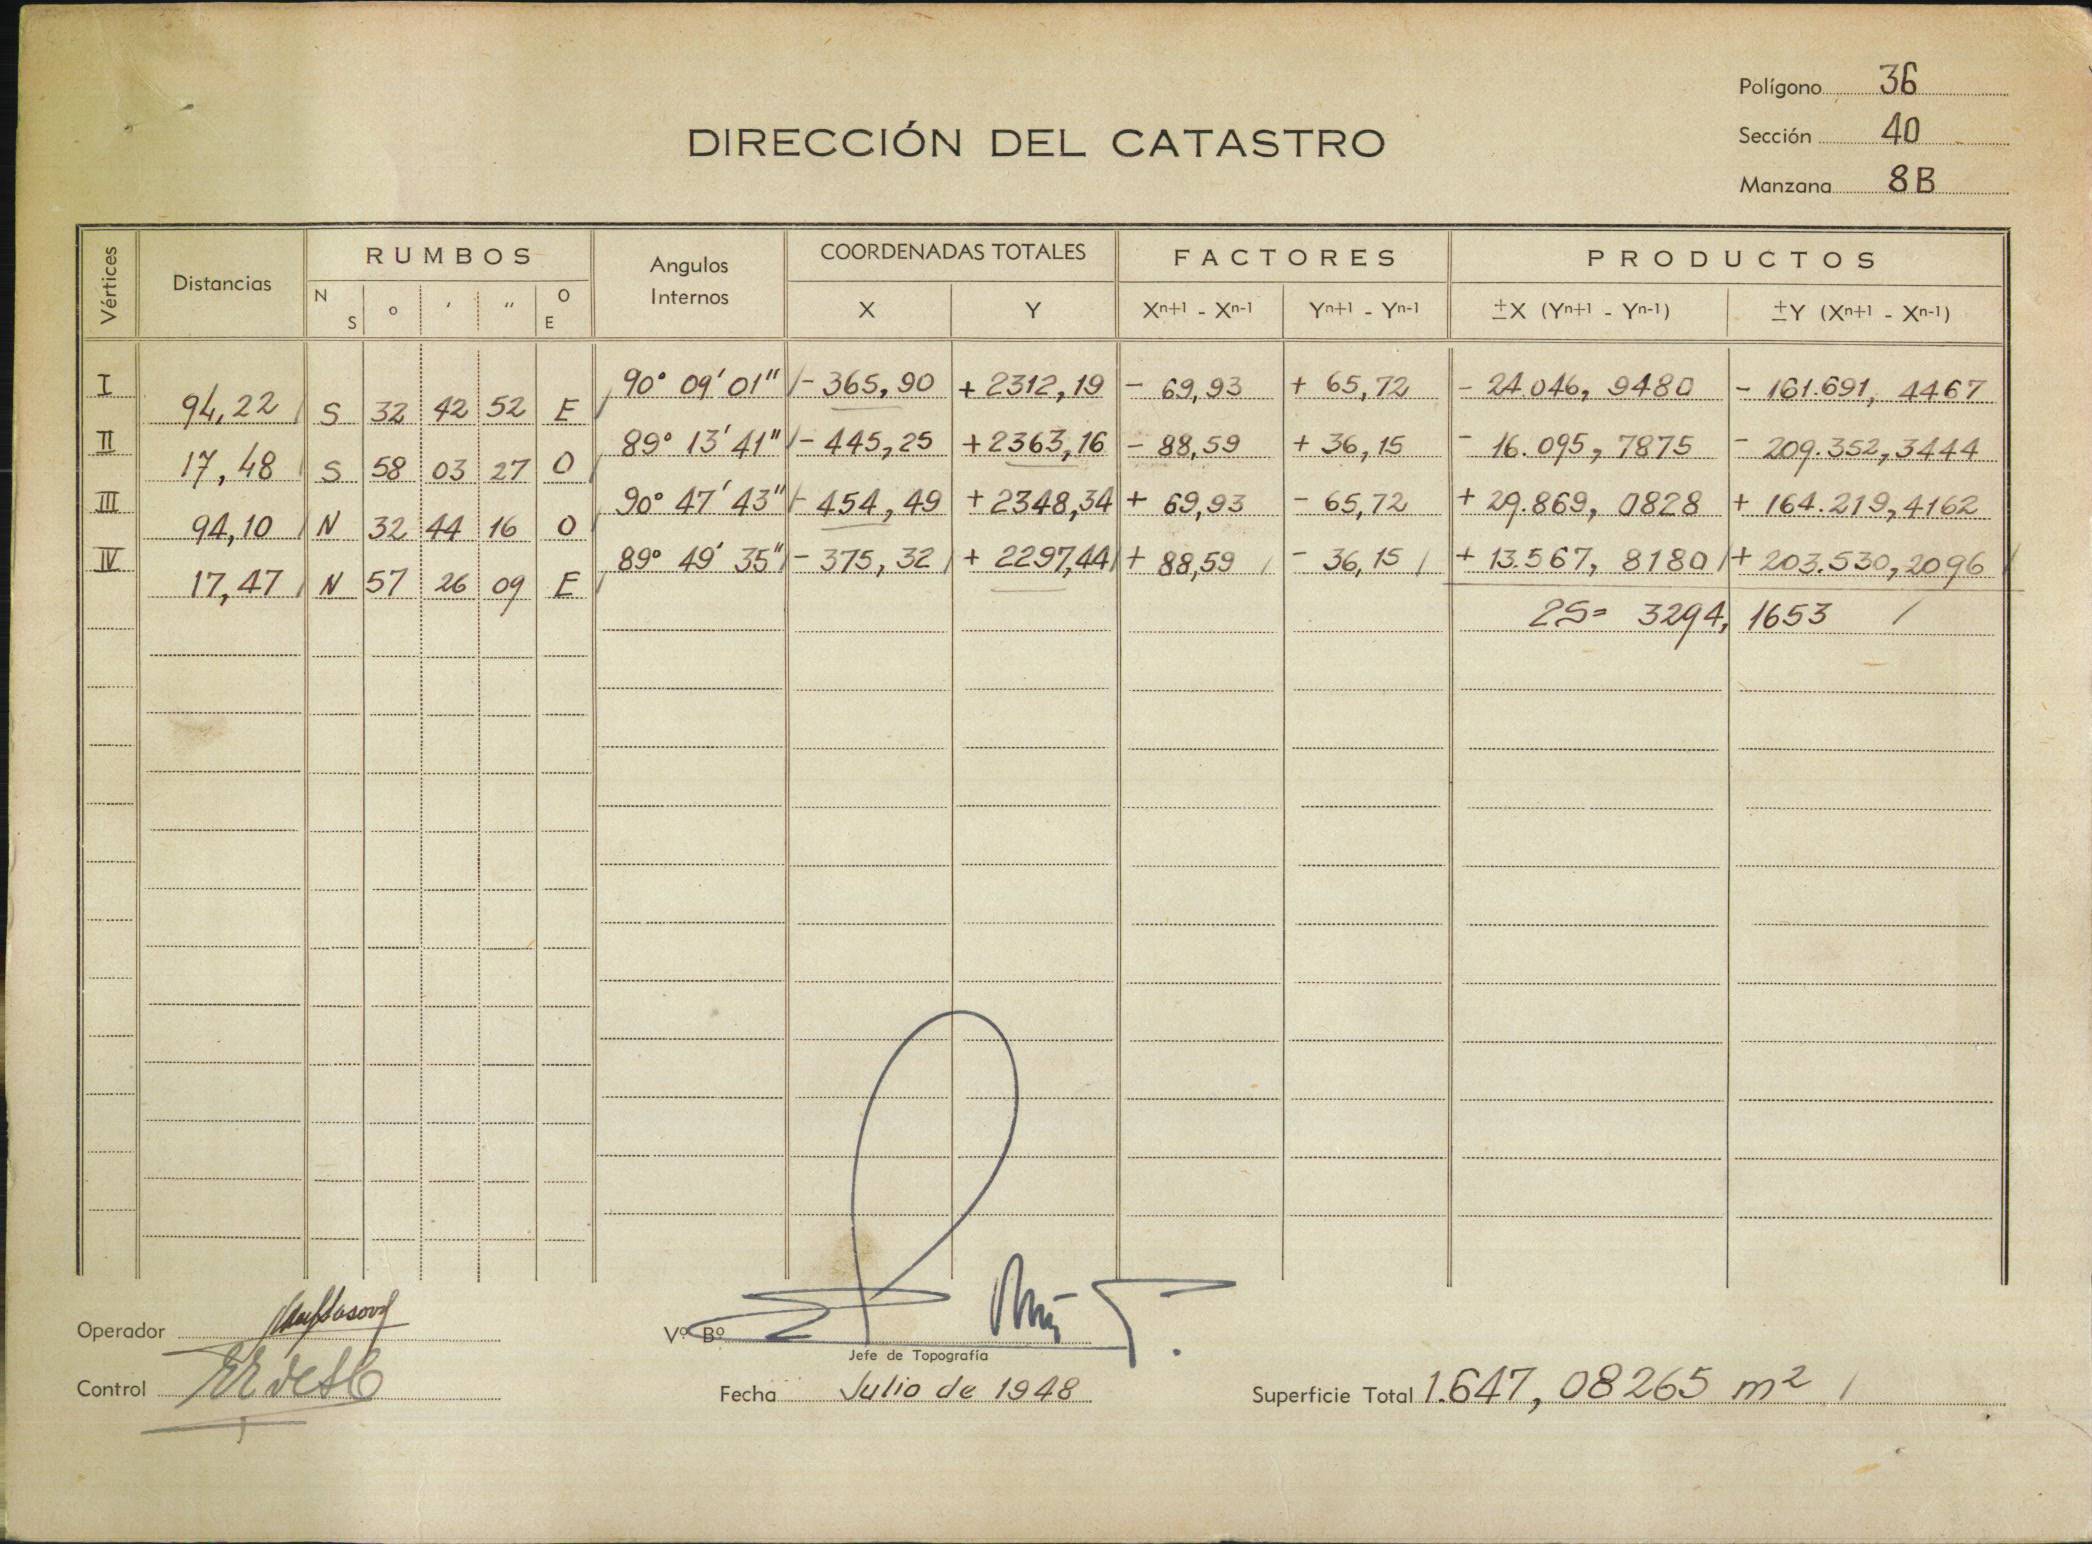 Polígono 36
DIRECCIÓN DEL CATASTRO
Sección 40
Manzana 8B
Vértices Distancias RUMBOS Angulos Internos COORDENADAS TOTALES FACTORES PRODUCTOS
N S ° ′ ″ O E X Y Xⁿ⁺¹ - Xⁿ⁻¹ Yⁿ⁺¹ - Yⁿ⁻¹ ±X (Yⁿ⁺¹ - Yⁿ⁻¹) ±Y (Xⁿ⁺¹ - Xⁿ⁻¹)
I 90° 09′ 01″ - 365,90 + 2312,19 - 69,93 + 65,72 - 24.046,9480 - 161.691,4467
94,22 S 32 42 52 E
II 89° 13′ 41″ - 445,25 + 2363,16 - 88,59 + 36,15 - 16.095,7875 - 209.352,3444
17,48 S 58 03 27 O
III 90° 47′ 43″ - 454,49 + 2348,34 + 69,93 - 65,72 + 29.869,0828 + 164.219,4162
94,10 N 32 44 16 O
IV 89° 49′ 35″ - 375,32 + 2297,44 + 88,59 - 36,15 + 13.567,8180 + 203.530,2096
17,47 N 57 26 09 E
2S= 3294,1653
Operador
Vº Bº
Jefe de Topografía
Control
Fecha Julio de 1948
Superficie Total 1.647,08265 m²